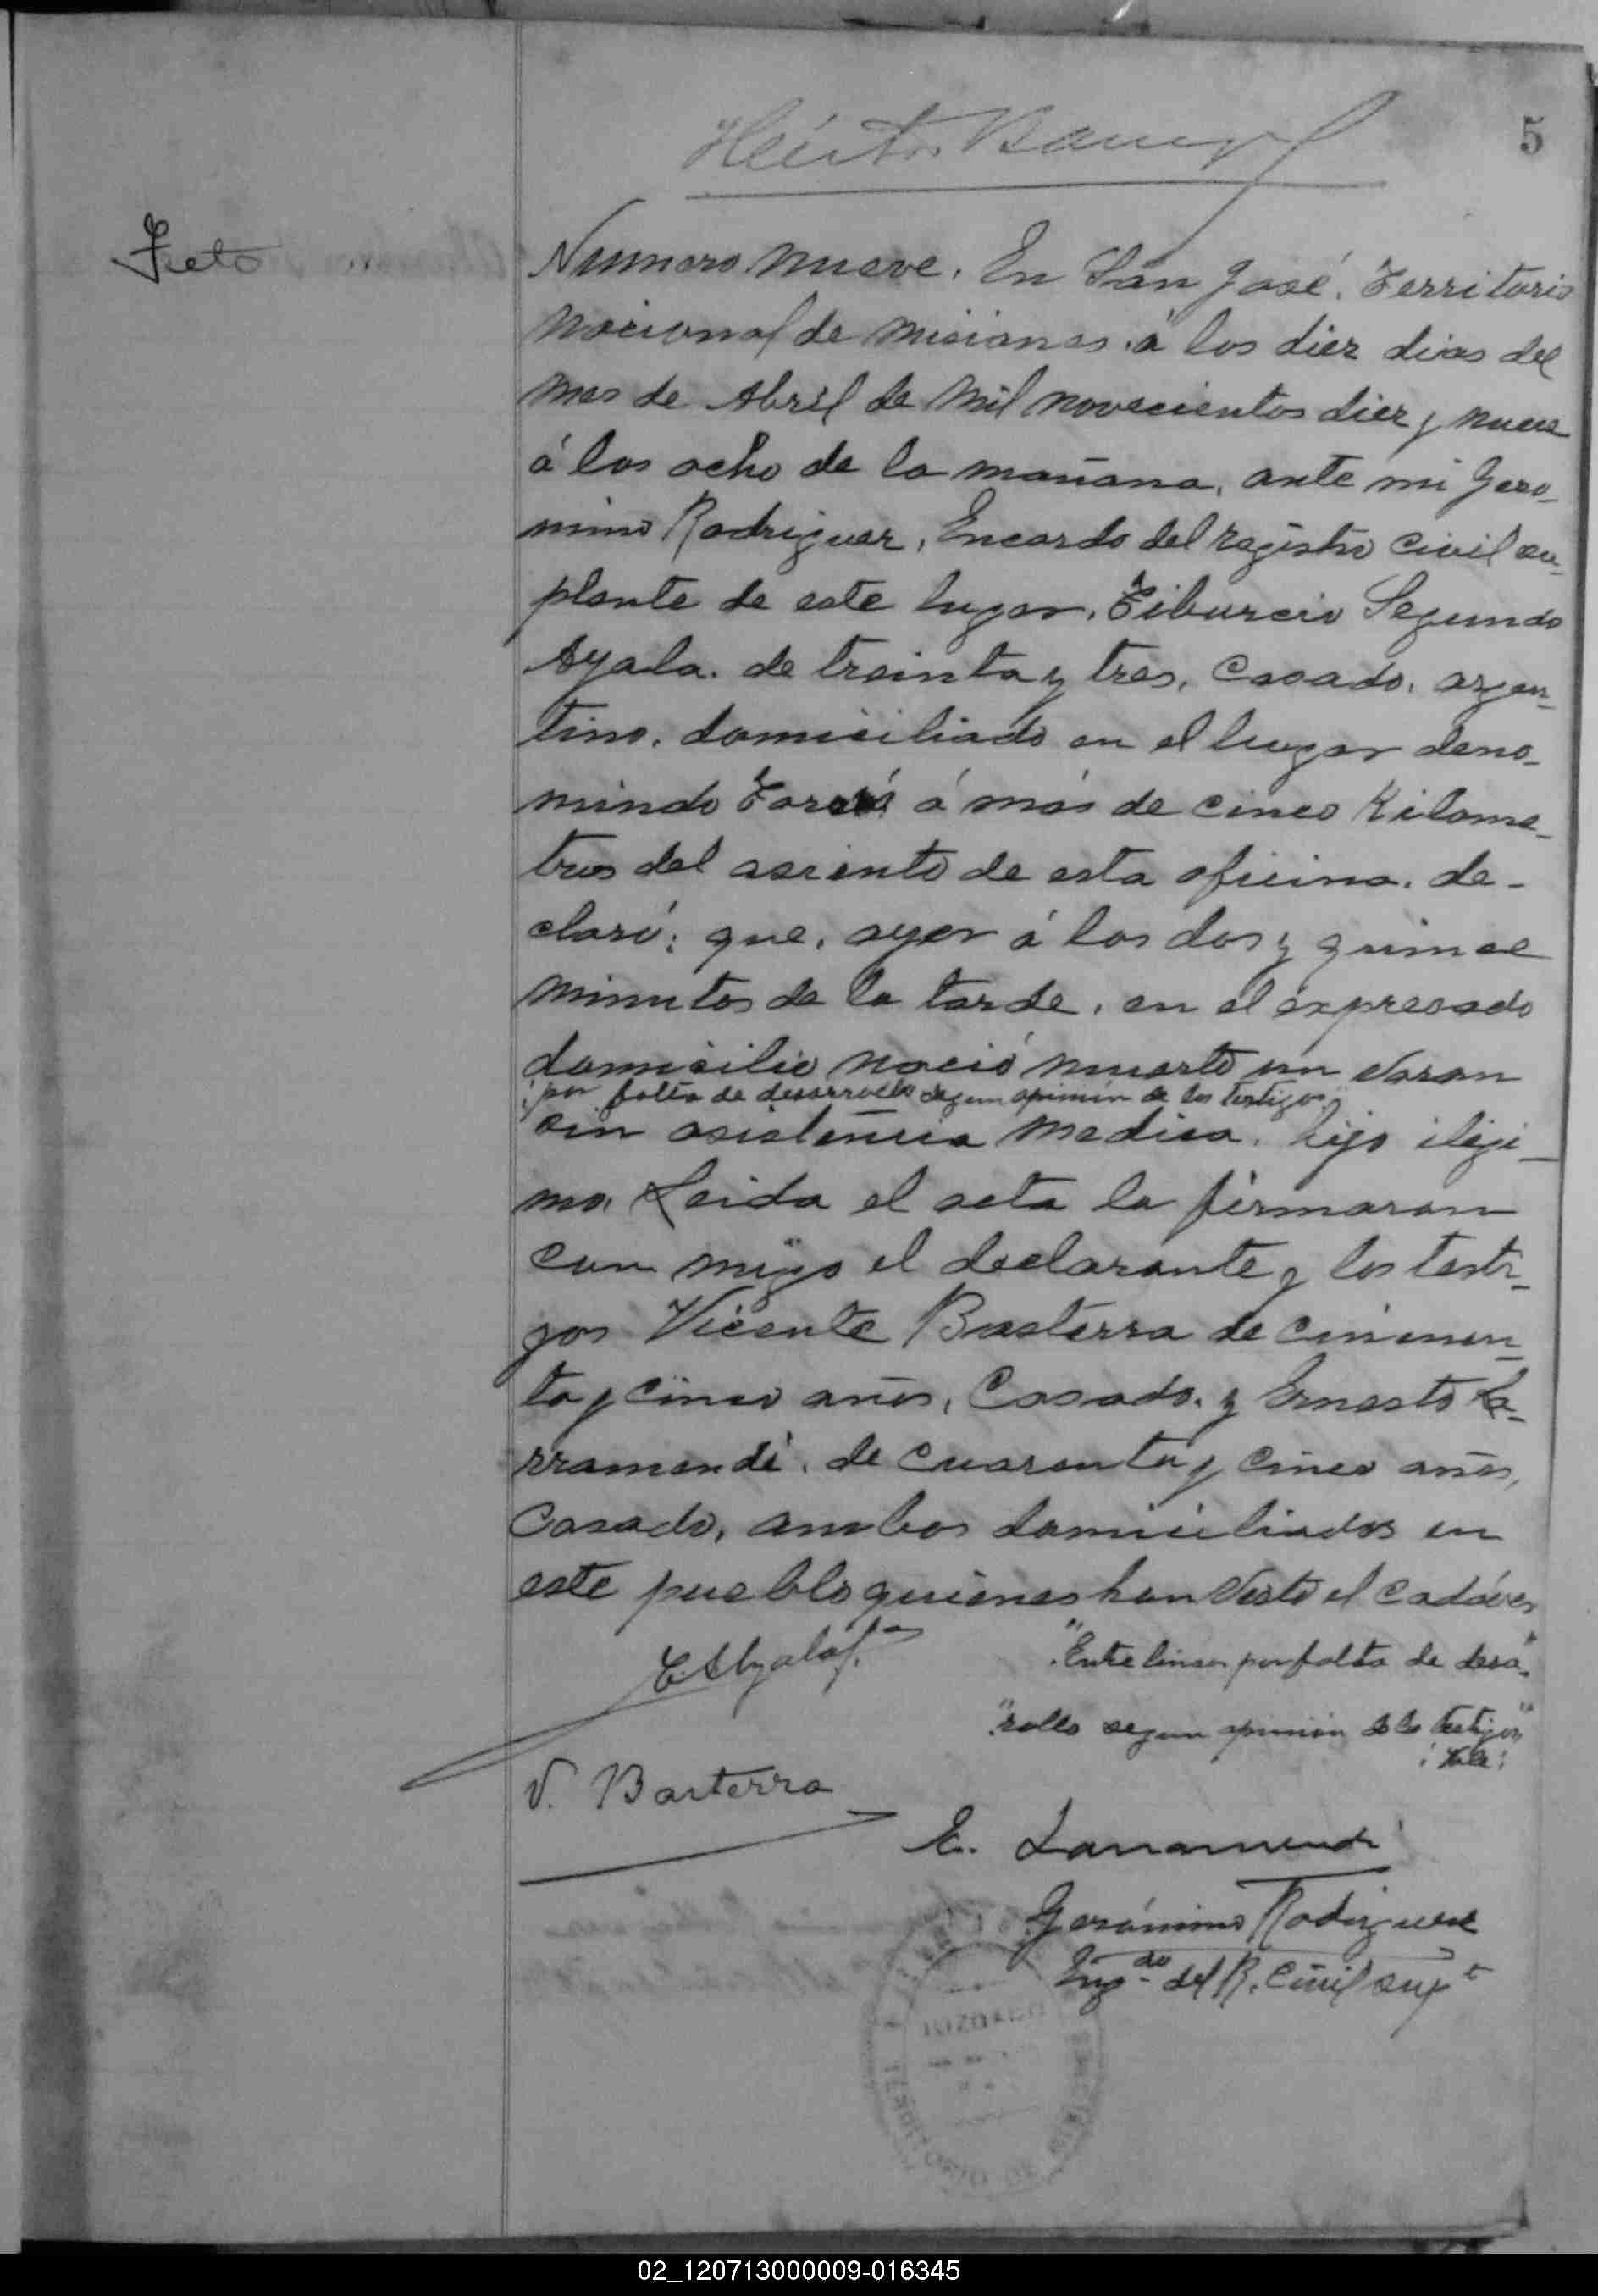 5
Feto
Numero nueve. En San José, Territorio
Nacional de Misiones, á los diez dias del
mes de Abril de mil novecientos diez y nueve
á las ocho de la mañana, ante mi Gero-
nimo Rodriguez, Encardo del registro Civil su-
plente de este lugar, Tiburcio Segundo
Ayala, de treinta y tres, Casado, argen-
tino, domiciliado en el lugar deno-
mindo á más de cinco Kilome-
tros del asiento de esta oficina, de-
claró: que, ayer á las dos y quince
minutos de la tarde, en el expresado
domicilio nació muerto un varon
"por falta de desarrollo segun opinión de los testigos"
sin asistencia medica, hijo iligi-
mo. Leida el acta la firmaron
con migo el declarante y los testi-
gos Vicente Basterra de cincuen-
ta y cinco años, Casado, y Ernesto La-
rramendi, de cuarenta y cinco años,
Casado, ambos domiciliados en
este pueblo quienes han visto el Cadáver
T S Ayala
"Entre lineas por falta de desa-"
"rollo segun opinión de los testigos"
: Vale :
V. Basterra
E. Larramendi
Gerónimo Rodriguez
Eng.do del R. Civil sup.t
JUZGADO
TERRITORIO DE MISIONES
02_120713000009-016345